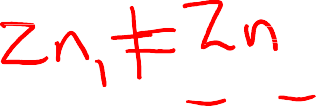 Zn, ≠ Zn